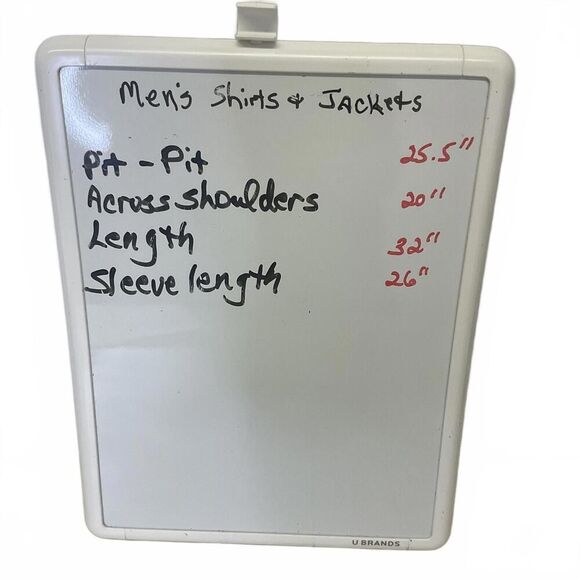 Men's Shirts & Jackets
Pit - Pit 25.5"
Across Shoulders 20"
Length 32"
Sleeve length 26"
U BRANDS